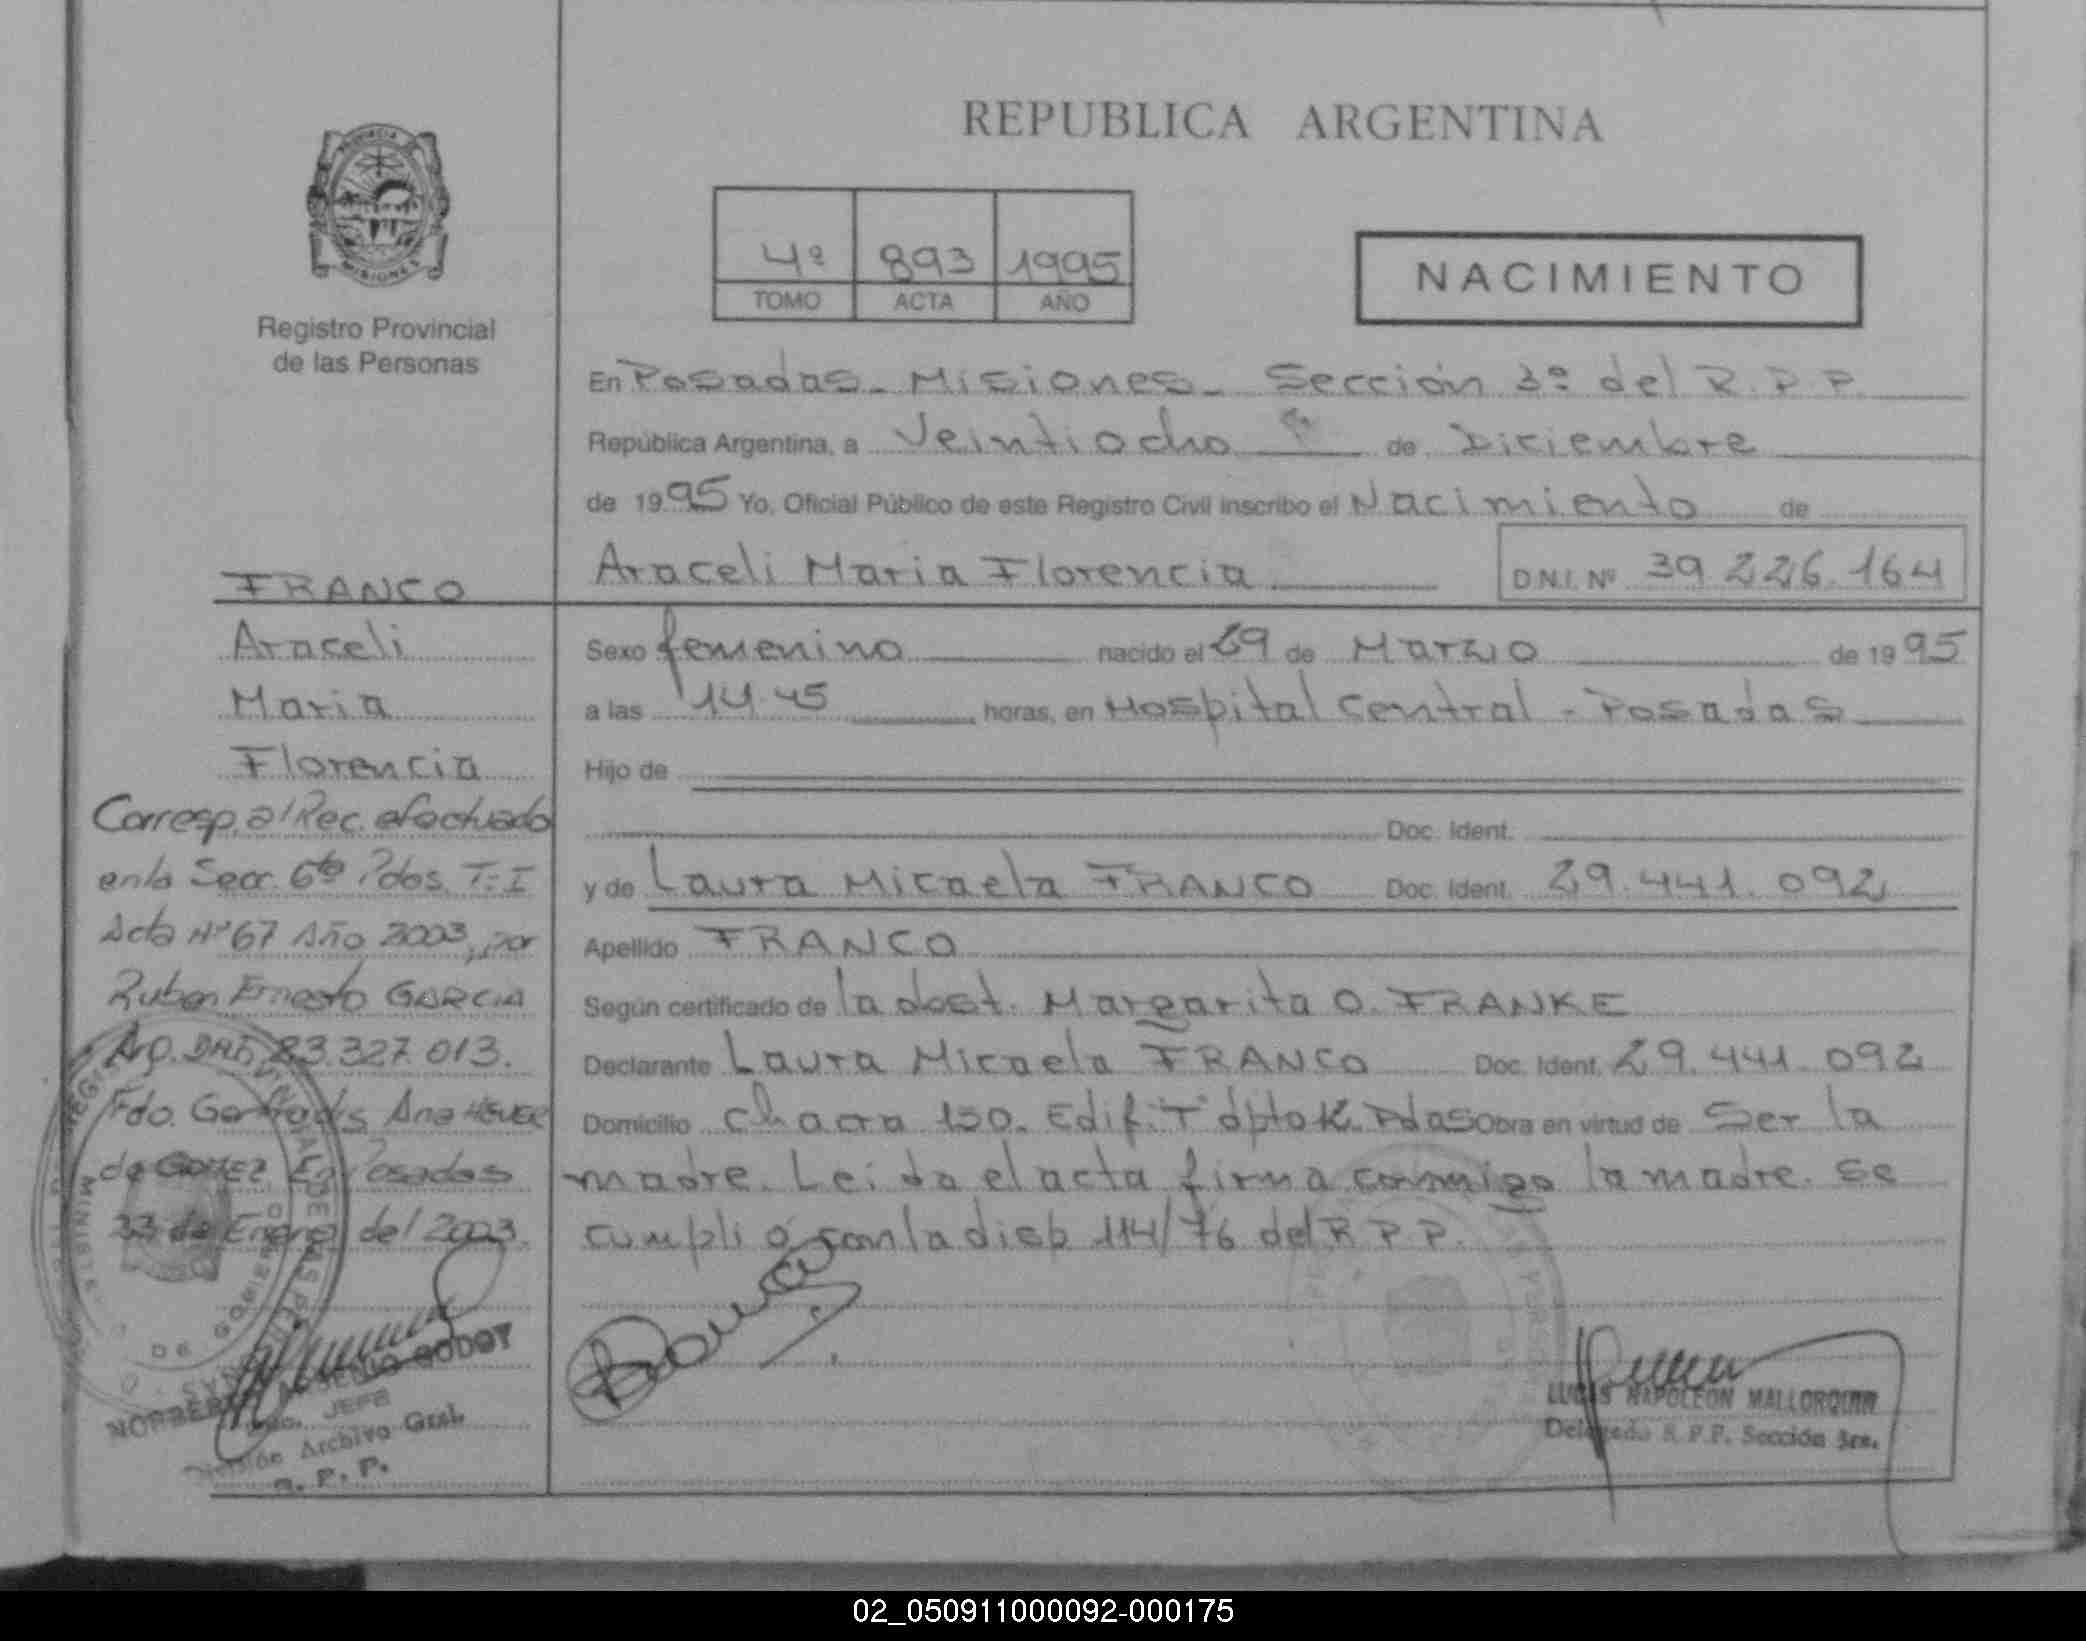 REPUBLICA ARGENTINA
PROVINCIA
MISIONES
Registro Provincial
de las Personas
4º 893 1995
TOMO ACTA AÑO
NACIMIENTO
En Posadas - Misiones - Sección 3º del R.P.P.
República Argentina, a Veintiocho de Diciembre
de 1995 Yo, Oficial Público de este Registro Civil inscribo el Nacimiento de
Araceli Maria Florencia D.N.I. Nº 39.226.164
FRANCO
Araceli
Maria
Florencia
Corresp. al Rec. efectuado
en la Secc. 6ta Pdas. T-I
Acta Nº 67 Año 2003, por
Ruben Ernesto GARCIA
Arg. DNI. 23.327.013.
Fdo. Ana
de GOMEZ. En Posadas
de Enero del 2003.
GODOY
JEFE
División Archivo Gral.
R. P. P.
Sexo femenino nacido el 29 de Marzo de 1995
a las 14.45 horas, en Hospital Central - Posadas
Hijo de
Doc. Ident.
y de Laura Micaela FRANCO Doc. Ident. 29.441.092
Apellido FRANCO
Según certificado de la doct. Margarita O. FRANKE
Declarante Laura Micaela FRANCO Doc. Ident. 29.441.092
Domicilio Chacra 150. Edif. "T" dpto K. Pdas Obra en virtud de Ser la
madre. Leida el acta firma conmigo la madre. Se
cumplió con la disp 114/76 del R.P.P.
LUCAS NAPOLEON MALLORQUIN
Delegado R.P.P. Sección 3ra.
02_050911000092-000175